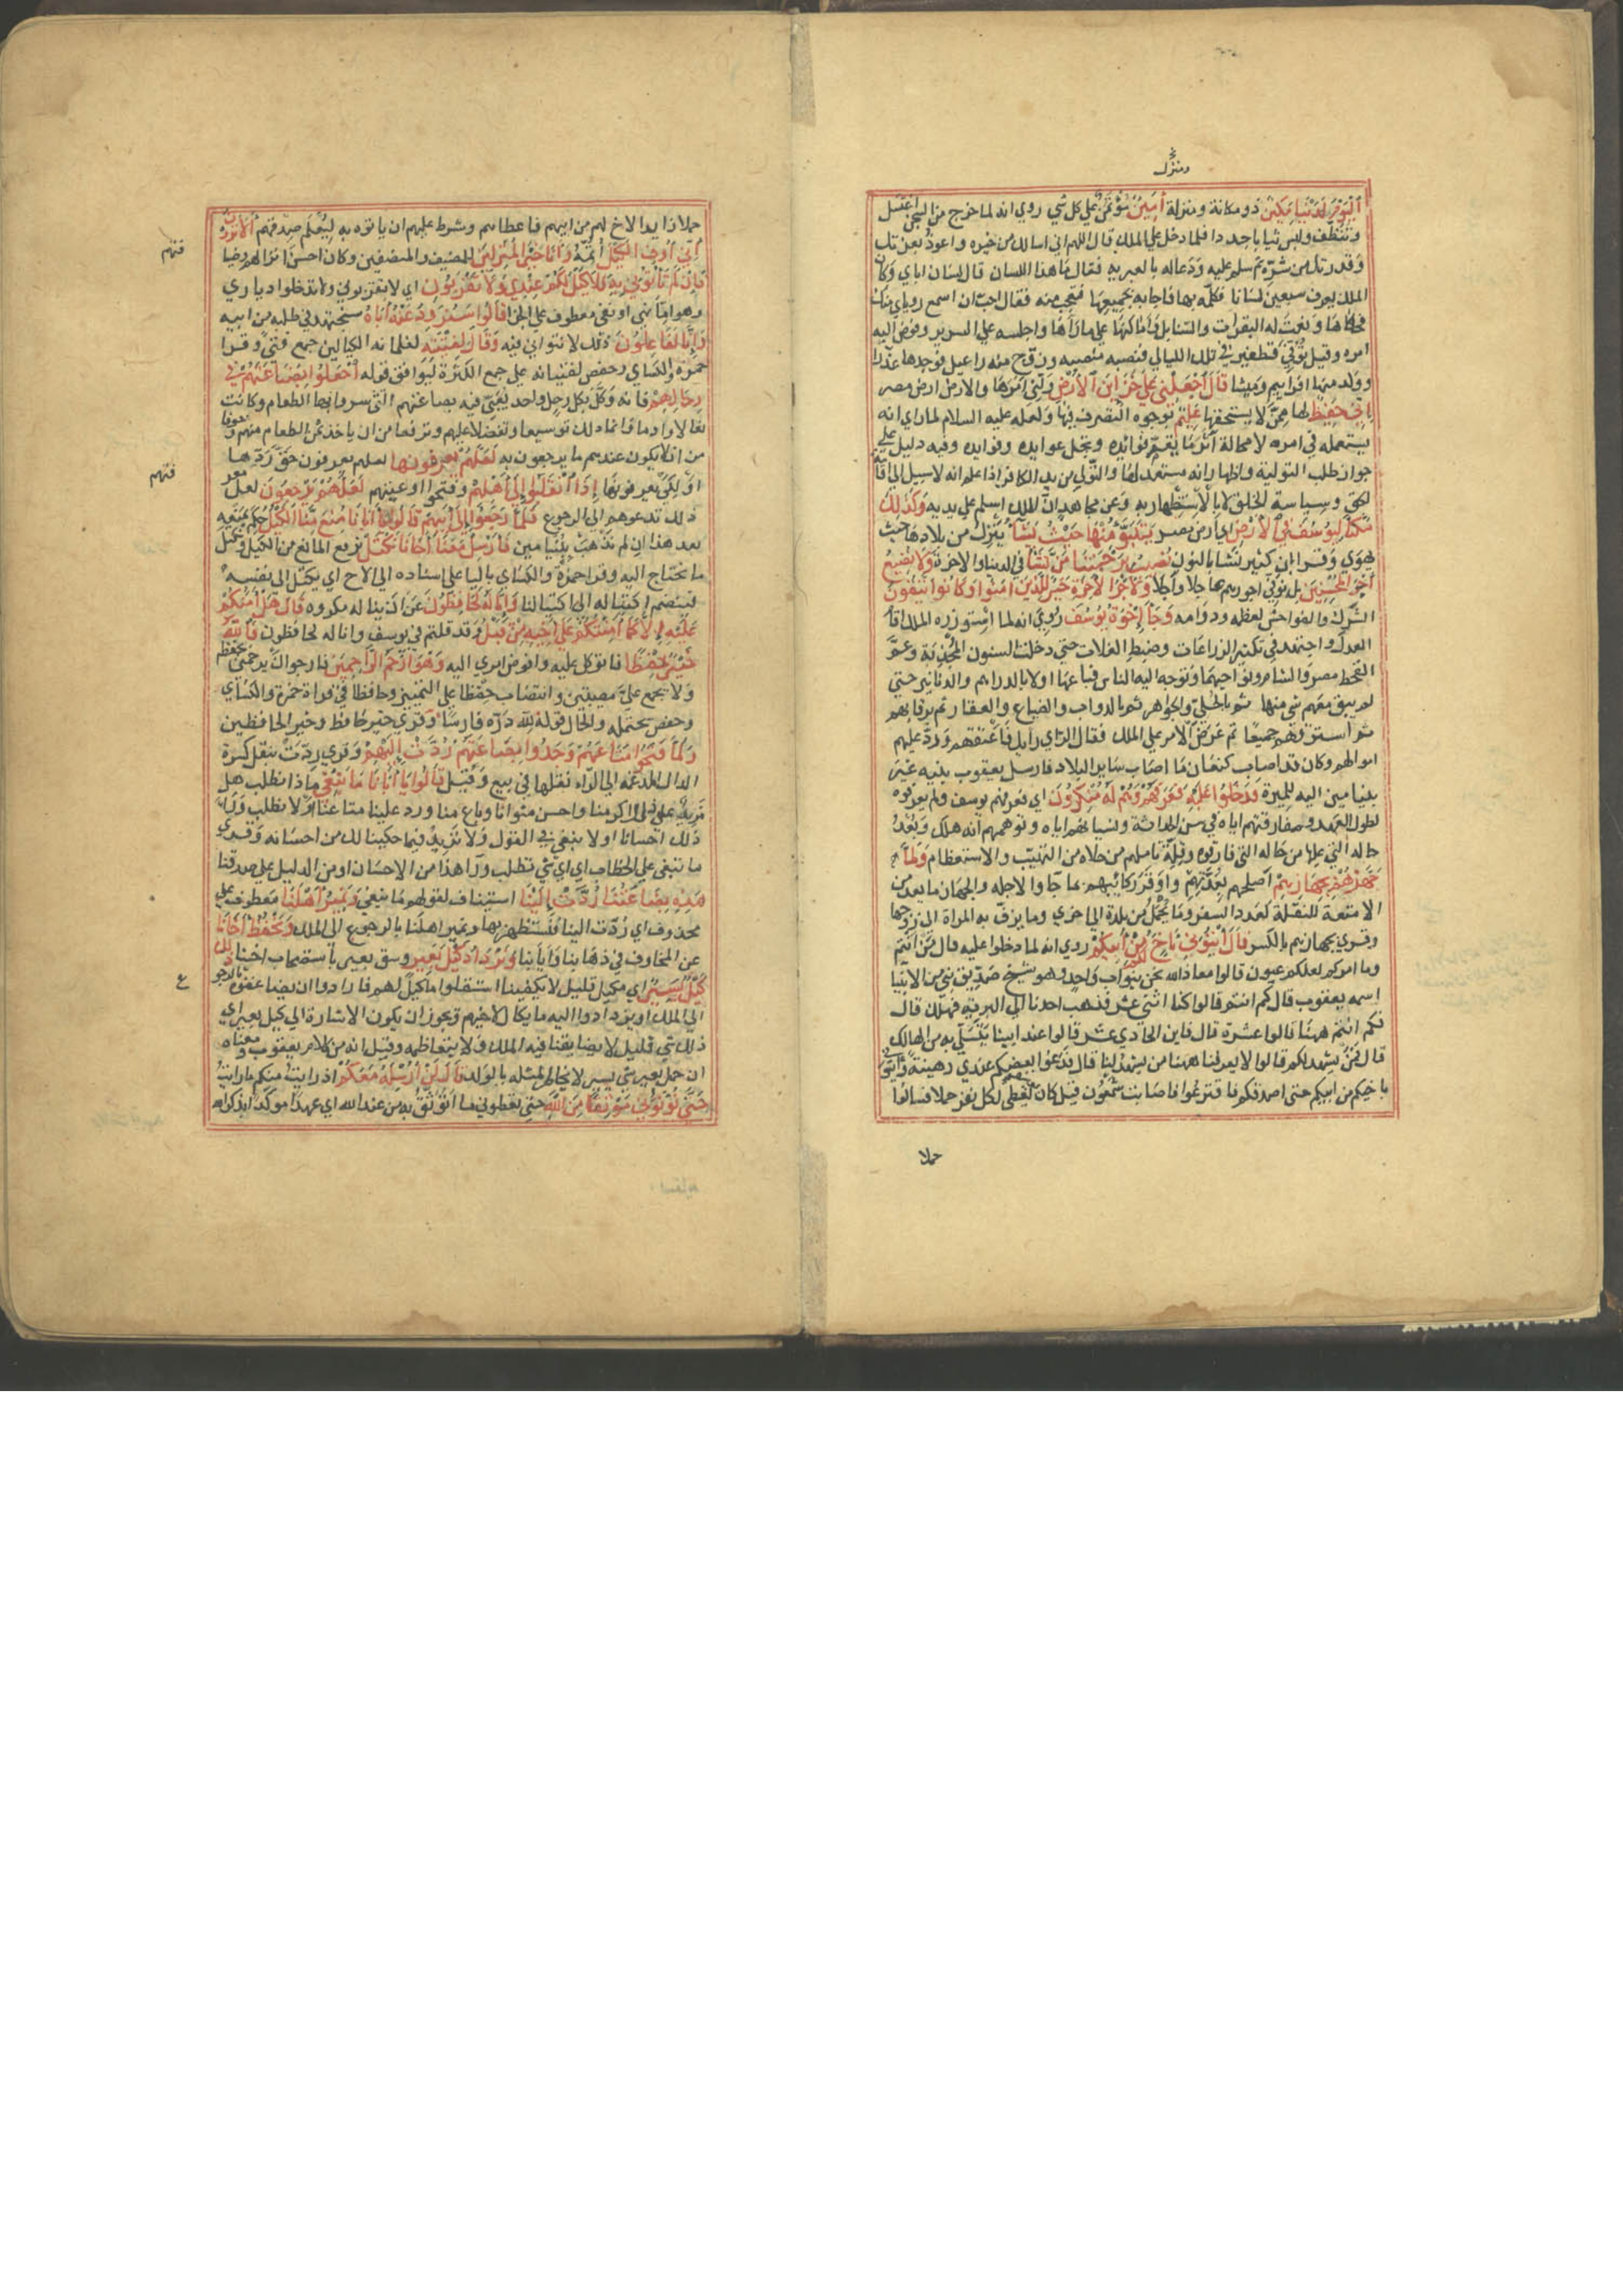 ومنزل
اليوم لدينا مكين ذو مكانة ومنزلة أمين مؤتمن على كل شي روي انه لما خرج من السجن اغتسل
وتنظف ولبس ثيابا جددا فلما دخل على الملك قال اللهم اني اسالك من خيره واعوذ بعزتك
وقدرتك من شره ثم سلم عليه ودعا له بالعبريه فقال ما هذا اللسان قال لسان ابائي وكان
الملك يعرف سبعين لسانا فكلمه بها فاجابه بجميعها فتعجب منه فقال احب ان اسمع روياي منك
فحكاها ونعت له البقرات والسنابل واماكنها على ما رآها واجلسه على السرير وفوض اليه
امره وقيل توفي قطفير في تلك الليالي فنصبه منصبه وزوج منه راعيل فوجدها عذرا
وولد منها افراييم وميشا قال اجعلني على خزائن الأرض ولني امرها والارض ارض مصر
إني حفيظ لها ممن لا يستحقها عليم بوجوه التصرف فيها ولعله عليه السلام لما راي انه
يستعمله في امره لا محالة آثر ما يعم فوائده ويجل عوايده وفيه دليل على
جواز طلب التولية واظهار انه مستعد لها والتولي من يد الكافر اذا علم انه لا سبيل الى اقامة
الحق وسياسة الخلق الا بالاستظهار به وعن مجاهد ان الملك اسلم على يديه وكذلك
مكنا ليوسف في الأرض اي ارض مصر يتبوأ منها حيث يشآ ينزل من بلادها حيث
يهوي وقرا ابن كثير نشا بالنون نصيب برحمتنا من نشآ في الدنيا والاخرة ولا نضيع
أجر المحسنين بل نوفي اجورهم عاجلا وآجلا ولأجر الآخرة خير للذين امنوا وكانوا يتقون
الشرك والفواحش لعظمه ودوامه وجآ إخوة يوسف روي انه لما استوزره الملك اقام
العدل واجتهد في تكثير الزراعات وضبط الغلات حتى دخلت السنون المجدبة وعم
القحط مصر والشام ونواحيهما وتوجه اليه الناس فباعها اولا بالدراهم والدنانير حتى
لم يبق معهم شي منها ثم بالحلي والجواهر ثم بالدواب والضياع والعقار ثم برقابهم
ثم استرقهم جميعا ثم عرض الامر على الملك فقال الراي رايك فاعتقهم ورد عليهم
اموالهم وكان قد اصاب كنعان ما اصاب ساير البلاد فارسل يعقوب بنيه غير
بنيامين اليه للميرة فدخلوا عليه فعرفهم وهم له منكرون اي فعرفهم يوسف ولم يعرفوه
لطول العهد ومفارقتهم اياه في سن الحداثة ونسيانهم اياه وتوهمهم انه هلك وبعد
حاله التي عليها من حاله التي فارقوه وقلة تاملهم من حلاه من التهيب والاستعظام ولما
جهزهم بجهازهم أصلحهم بعدتهم واوقر ركائبهم بما جاوا لاجله والجهاز ما يعد من
الامتعة للنقلة كعدد السفر وما يحمل من بلدة الى اخري وما يزف به المراة الى زوجها
وقري بجهازهم بالكسر قال ائتوني بأخ لكم من أبيكم روي انه لما دخلوا عليه قال من انتم
وما امركم لعلكم عيون قالوا معاذ الله نحن بنو اب واحد وهو شيخ صديق نبي من الانبيا
اسمه يعقوب قال كم انتم قالوا كنا اثني عشر فذهب احدنا الى البرية فهلك قال
فكم انتم ههنا قالوا عشرة قال فاين الحادي عشر قالوا عند ابينا يتسلى به من الهالك
قال فمن يشهد لكم قالوا لا يعرفنا ههنا من يشهد لنا قال فدعوا بعضكم عندي رهينة وائتوني
باخيكم من ابيكم حتى اصدقكم فاقترعوا فاصابت شمعون وقيل كان يعطي لكل نفر حملا فسالوا
حملا
حملا زايدا لاخ لهم من ابيهم فاعطاهم وشرط عليهم ان ياتوه به ليعلم صدقهم ألا ترون
أني أوفي الكيل أتمه وأنا خير المنزلين للضيف والمضيفين وكان احسن انزالهم وضيافتهم
فإن لم تأتوني به فلا كيل لكم عندي ولا تقربون اي لا تقربوني ولا تدخلوا دياري
وهو اما نهي او نفي معطوف على الجزا قالوا سنراود عنه أباه سنجتهد في طلبه من ابيه
وإنا لفاعلون ذلك لا نتوانى فيه وقال لفتيته لغلمانه الكيالين جمع فتى وقرا
حمزة والكساي وحفص لفتيانه على جمع الكثرة ليوافق قوله اجعلوا بضاعتهم في
رحالهم فانه وكل بكل رحل واحد يعبي فيه بضاعتهم التي شروا بها الطعام وكانت
نعالا وادما وانما فعل ذلك توسيعا وتفضلا عليهم وترفعا من ان ياخذ ثمن الطعام منهم وخوفا
من ان لا يكون عندهم ما يرجعون به لعلهم يعرفونها لعلهم يعرفون حق ردها
او لكي يعرفونها إذا انقلبوا إلى أهلهم وفتحوا اوعيتهم لعلهم يرجعون لعل معرفتهم
ذلك تدعوهم الى الرجوع فلما رجعوا إلى أبيهم قالوا يا أبانا منع منا الكيل حكم بمنعه
بعد هذا ان لم نذهب ببنيامين فأرسل معنا أخانا نكتل نرفع المانع من الكيل ونكتل
ما نحتاج اليه وقرا حمزة والكساي باليا على اسناده الى الاخ اي يكتل الى نفسه
فينضم اكتياله الى اكتيالنا وإنا له لحافظون عن ان يناله مكروه قال هل آمنكم
عليه إلا كما أمنتكم على أخيه من قبل وقد قلتم في يوسف وانا له لحافظون فالله
خير حفظا فاتوكل عليه وافوض امري اليه وهو أرحم الراحمين فارجو ان يرحمني بحفظه
ولا يجمع علي مصيبتين وانتصاب حفظا على التمييز وحافظا في قراة حمزة والكساي
وحفص يحتمله والحال كقوله لله دره فارسا وقري خير حافظ وخير الحافظين
ولما فتحوا متاعهم وجدوا بضاعتهم ردت إليهم وقري ردت بنقل كسرة
الدال المدغمة الى الراء نقلها في بيع وقيل قالوا يا أبانا ما نبغي ماذا نطلب هل
مزيد على ذلك اكرمنا واحسن مثوانا وباع منا ورد علينا متاعنا او لا نطلب وراء
ذلك احسانا او لا نبغي في القول ولا نزيد فيما حكينا لك من احسانه وقري
ما تبغي على الخطاب اي اي شي تطلب ورآ هذا من الاحسان او من الدليل على صدقنا
هذه بضاعتنا ردت إلينا استيناف لقولهم ما نبغي ونمير أهلنا معطوف على
محذوف اي ردت الينا فنستظهر بها ونمير اهلنا بالرجوع الى الملك ونحفظ أخانا
عن المخاوف في ذهابنا وأيابنا ونزداد كيل بعير وسق بعير باستصحاب اخينا ذلك
كيل يسير اي مكيل قليل لا يكفينا استقلوا ما كيل لهم فارادوا ان يضاعفوه بالرجوع
الى الملك او يزدادوا اليه ما يكال لاخيهم ويجوز ان يكون الاشارة الى كيل بعير اي
ذلك شي قليل لا يضايقنا فيه الملك ولا يتعاظمه وقيل انه من كلام يعقوب ومعناه
ان حمل بعير شي يسير لا يخاطر لمثله بالولد قال لن أرسله معكم اذ رايت منكم ما رايت
حتى تؤتوني موثقا من الله حتى تعطوني ما اتوثق به من عند الله اي عهدا موكدا بذكر الله
فتهم
فتهم
ع